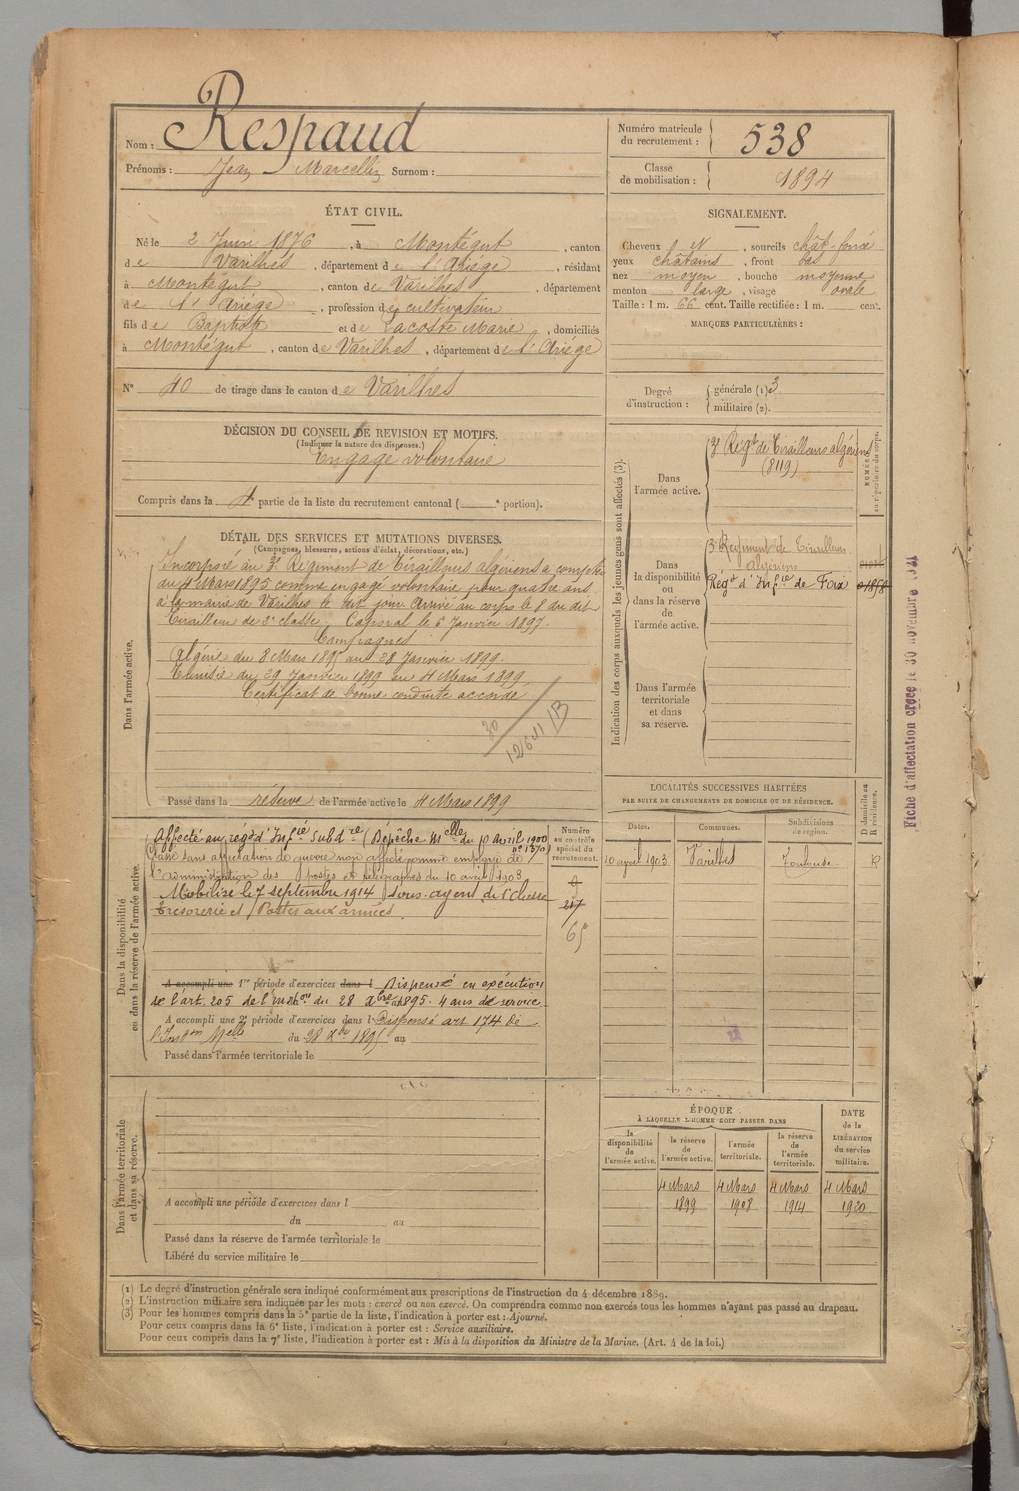 Nom : Respaud
Prénoms : Jean Marcellin Surnom :
Numéro matricule du recrutement : 538
Classe de mobilisation : 1894
ÉTAT CIVIL.
Né le 2 Juin 1876, à Montégut, canton
de Varilhes, département de l'Ariège, résidant
à Montégut, canton de Varilhes, département
de l'Ariège, profession de cultivateur
fils de Baptiste et de Lacoste Marie, domiciliés
à Montégut, canton de Varilhes, département de l'Ariège
N° 40 de tirage dans le canton de Varilhes
SIGNALEMENT.
Cheveux et, sourcils chât-foncé
yeux châtains, front bas
nez moyen, bouche moyenne
menton large, visage ovale
Taille : 1 m. 66 cent. Taille rectifiée : 1 m. cent.
MARQUES PARTICULIÈRES :
Degré d'instruction : générale (1) 3
militaire (2).
DÉCISION DU CONSEIL DE REVISION ET MOTIFS.
(Indiquer la nature des dispenses.)
Engagé volontaire
Compris dans la 4e partie de la liste du recrutement cantonal ( e portion).
DÉTAIL DES SERVICES ET MUTATIONS DIVERSES.
(Campagnes, blessures, actions d'éclat, décorations, etc.)
Dans l'armée active.
Incorporé au 3e Régiment de Tirailleurs algériens à compter
du 4 Mars 1895 comme engagé volontaire pour quatre ans
à la mairie de Varilhes le dit jour. Arrivé au corps le 8 du dit
Tirailleur de 2e classe. Caporal le 6 Janvier 1897.
Campagnes
Algérie du 8 Mars 1895 au 28 Janvier 1899.
Tunisie du 29 Janvier 1899 au 4 Mars 1899.
Certificat de bonne conduite accordé
Passé dans la réserve de l'armée active le 4 Mars 1899
Indication des corps auxquels les jeunes gens sont affectés (3).
NUMÉRO au répertoire du corps.
Dans l'armée active.
3e Régt de Tirailleurs algériens
(8119)
Dans la disponibilité ou dans la réserve de l'armée active.
3e Régiment de Tirailleurs
algériens
Régt d'Infie de Foix 01858
Dans l'armée territoriale et dans sa réserve.
Fiche d'affectation créée le 30 novembre 1921
Dans la disponibilité ou dans la réserve de l'armée active.
Affecté au régt d'Infie Subdre (Dépêche Mlle du 10 Avril 1900
n° 1370)
Classé sans affectation de guerre non affecté comme employé de
l'administration des postes et télégraphes du 10 avril 1903
Mobilisé le 7 septembre 1914 sous-agent de 1re classe
Trésorerie et Postes aux armées.
Numéro au contrôle spécial du recrutement.
217
A accompli une 1re période d'exercices dans l Dispensé en exécution
de l'art. 205 de l'Inston du 28 Xbre 1895. 4 ans de service.
A accompli une 2e période d'exercices dans l Dispensé art 174 de
l'Inson Mlle du 28 Xbre 1895 au
Passé dans l'armée territoriale le
LOCALITÉS SUCCESSIVES HABITÉES
PAR SUITE DE CHANGEMENTS DE DOMICILE OU DE RÉSIDENCE.
Dates. Communes. Subdivisions de région. D domicile ou R résidence.
10 avril 1903 Varilhes Toulouse R
Dans l'armée territoriale et dans sa réserve.
A accompli une période d'exercices dans l
du au
Passé dans la réserve de l'armée territoriale le
Libéré du service militaire le
ÉPOQUE
À LAQUELLE L'HOMME DOIT PASSER DANS
la disponibilité de l'armée active. la réserve de l'armée active. l'armée territoriale. la réserve de l'armée territoriale.
DATE de la LIBÉRATION du service militaire.
4 Mars 4 Mars 4 Mars 4 Mars
1899 1908 1914 1920
(1) Le degré d'instruction générale sera indiqué conformément aux prescriptions de l'instruction du 4 décembre 1889.
(2) L'instruction militaire sera indiquée par les mots : exercé ou non exercé. On comprendra comme non exercés tous les hommes n'ayant pas passé au drapeau.
(3) Pour les hommes compris dans la 5e partie de la liste, l'indication à porter est : Ajourné.
Pour ceux compris dans la 6e liste, l'indication à porter est : Service auxiliaire.
Pour ceux compris dans la 7e liste, l'indication à porter est : Mis à la disposition du Ministre de la Marine. (Art. 4 de la loi.)